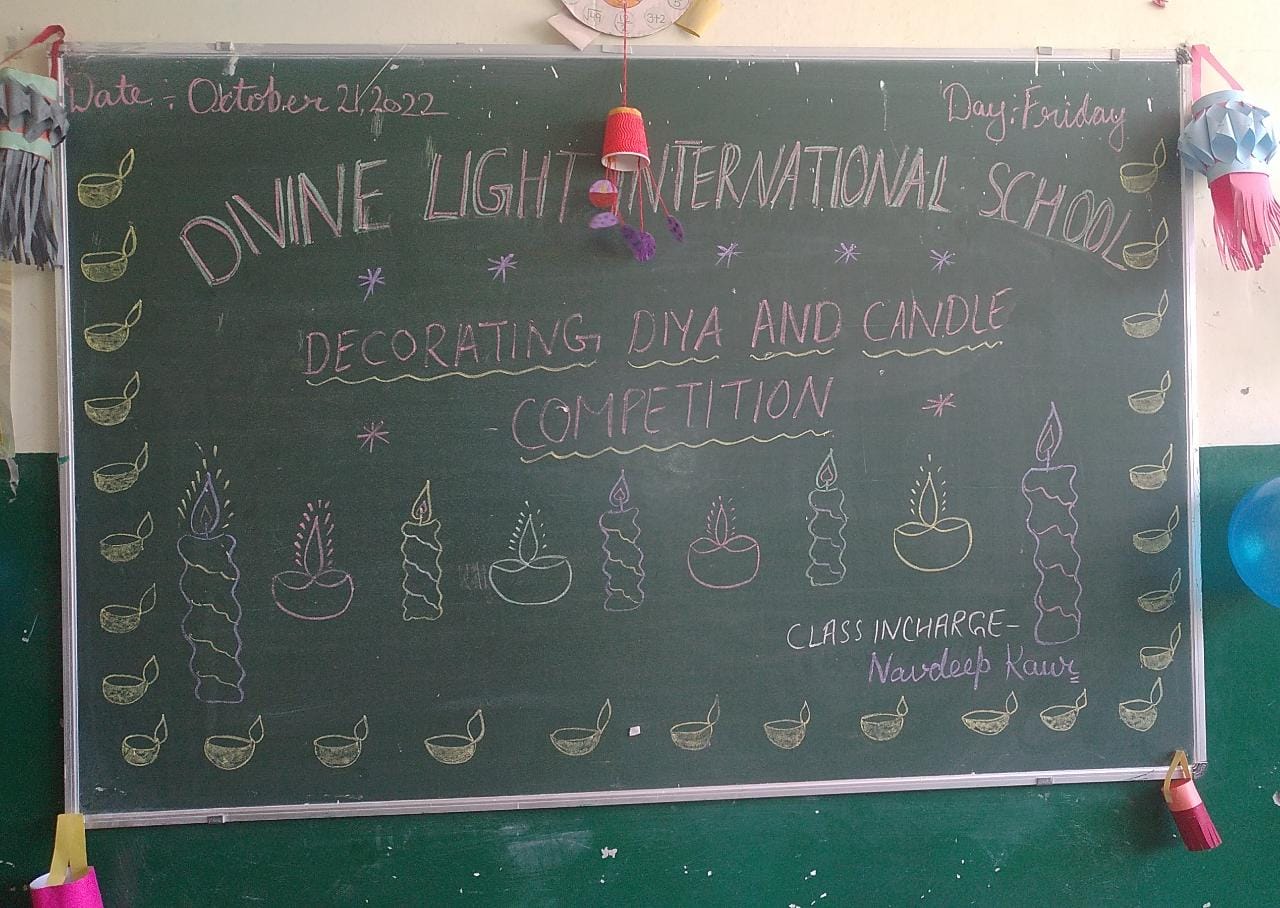 Date :- October 21,2022
Day:Friday
DIVINE LIGHT INTERNATIONAL SCHOOL
DECORATING DIYA AND CANDLE
COMPETITION
CLASS INCHARGE-
Navdeep Kaur